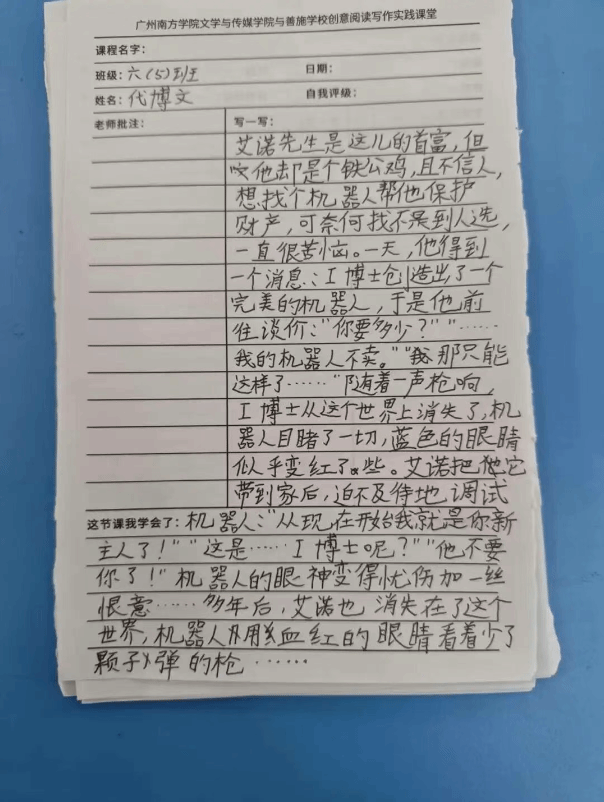 广州南方学院文学与传媒学院与善施学校创意阅读写作实践课堂
课程名字：
班级：六（5）班
日期：
姓名：代博文
自我评级：
老师批注：
写一写：
艾诺先生是这儿的首富，但
他却是个铁公鸡，且不信人，
想找个机器人帮他保护
财产，可奈何找不到人选，
一直很苦恼。一天，他得到
一个消息：I博士创造出了一个
完美的机器人，于是他前
往谈价：“你要多少？”“……
我的机器人不卖。”“那只能
这样了……”随着一声枪响，
I博士从这个世界上消失了，机
器人目睹了一切，蓝色的眼睛
似乎变红了些。艾诺把它
带到家后，迫不及待地调试
这节课我学会了：机器人：“从现在开始我就是你新
主人了！”“这是……I博士呢？”“他不要
你了！”机器人的眼神变得忧伤加一丝
恨意……多年后，艾诺也消失在了这个
世界，机器人用血红的眼睛看着少了
颗子弹的枪……